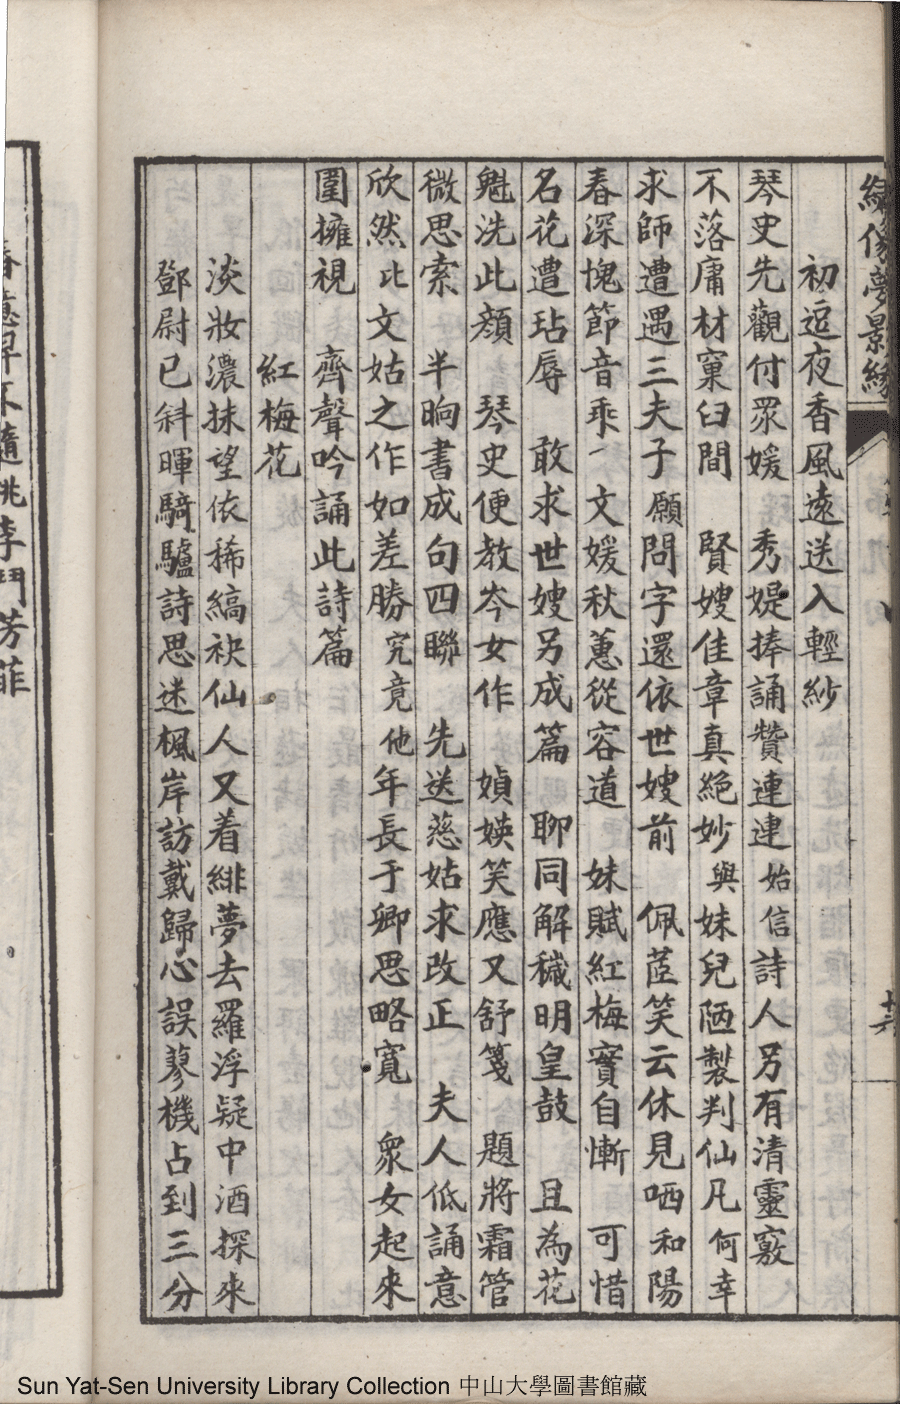 繡像夢景緣
初逗夜香風遠送入輕紗
琴史先觀付眾媛 秀媞捧誦贊連連始信詩人另有清靈竅
不落庸材窠臼間 賢嫂佳章真絕妙與妹兒陋製判仙凡何幸
求師遭遇三夫子願問字還依世嫂前 佩茝笑云休見哂和陽
春深愧節音乖 文媛秋蕙從容道 妹賦紅梅實自慚 可惜
名花遭玷辱 敢求世嫂另成篇 聊同解穢明皇鼓 且為花
魁洗此顏 琴史便教岑女作 媜媖笑應又舒箋 題將霜管
微思索 半晌書成句四聯 先送慈姑求改正 夫人低誦意
欣然比文姑之作如差勝究竟他年長于卿思略寬 衆女起來
圍擁視 齊聲吟誦此詩篇
紅梅花
淡妝濃抹望依稀縞袂仙人又着緋夢去羅浮疑中酒探來
鄧尉已斜暉騎驢詩思迷楓岸訪戴歸心誤蓼機占到三分
李鬥芳菲
Sun Yat-Sen University Library Collection 中山大學圖書館藏